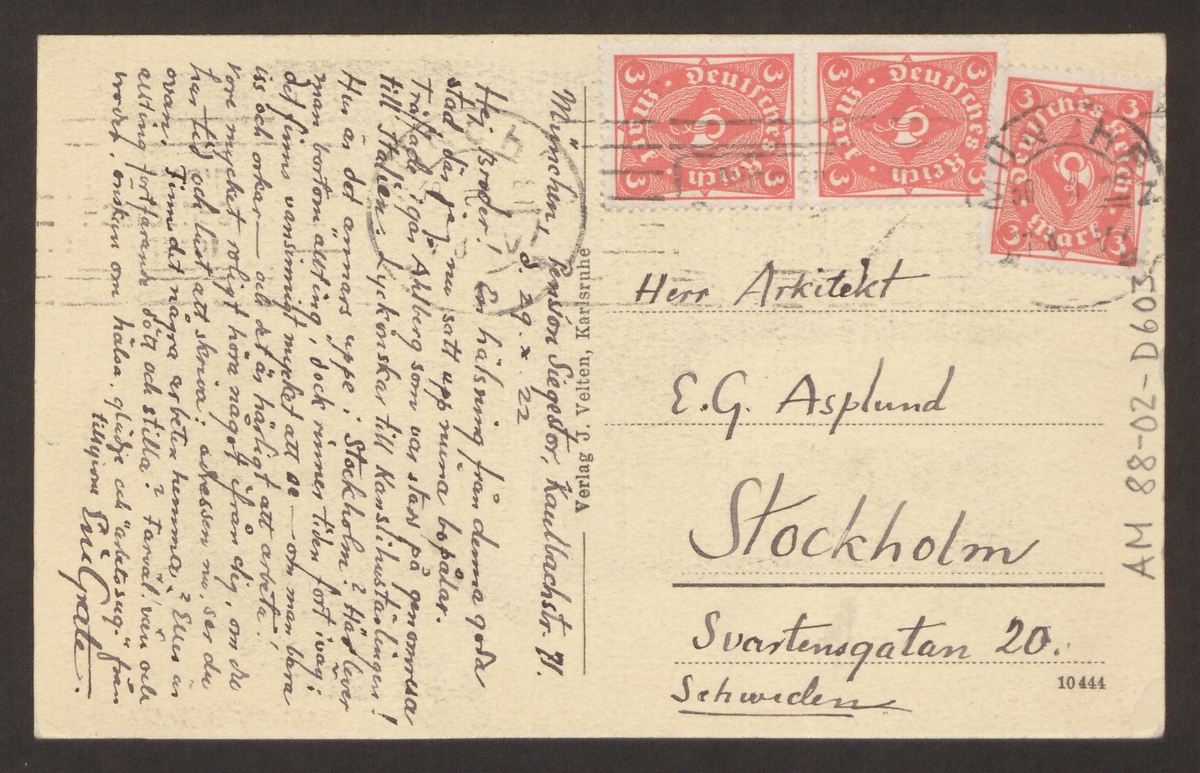 München, Pension Siegestor, Kaulbachstr. 91.
d. 29. x. 22
Hej, Broder! En hälsning från denna goda
stad där jag nu satt upp mina bopålar.
Träffade igår Ahlberg som var stadd på genomresa
till Italien. Lyckönskar till Kanslihustävlingen!
Hur är det annars uppe i Stockholm? Här lever
man bortom allting, dock rinner tiden fort iväg:
det finns vansinnigt mycket att se — om man bara
iss och orkar — och det är härligt att arbeta.
Vore mycket roligt höra något ifrån dig, om du
har tid och lust att skriva: adressen nu, ser du
ovan. Finns det några arbeten hemma? Eller är
allting fortfarande dött och stilla? Farväl, vän och
broder, önskan om hälsa, glädje och "arbetsug" från
tillgivne Eric Grate.
Verlag J. Velten, Karlsruhe
3 Deutsches Reich 3
3 Mark 3
3 Deutsches Reich 3
3 Mark 3
3 Deutsches Reich 3
3 Mark 3
MÜNCHEN
Herr Arkitekt
E.G. Asplund
Stockholm
Svartensgatan 20.
Schweden
10444
AM 88-02-D603